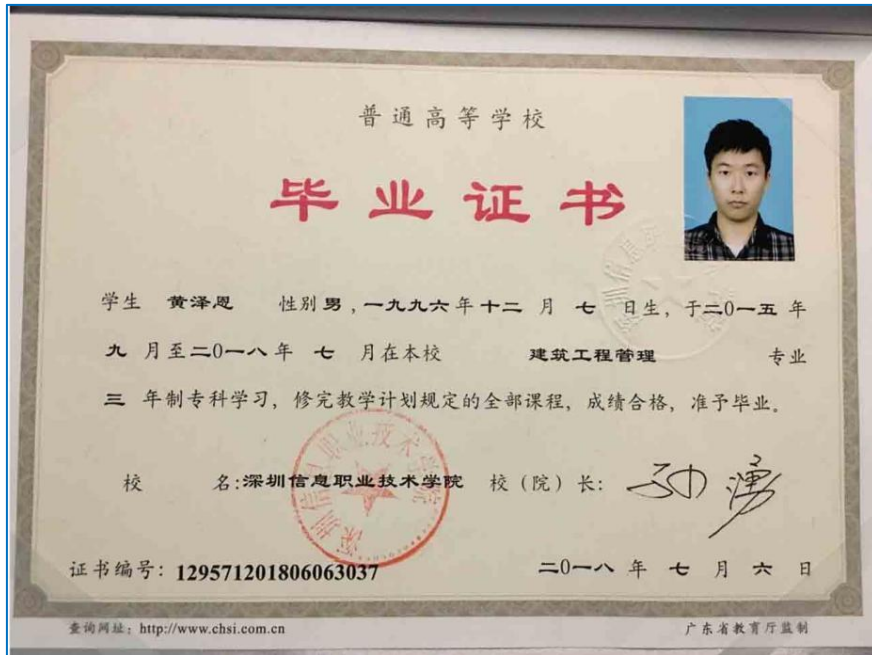 普通高等学校
毕业证书
学生 黄泽恩 性别 男，一九九六年十二 月 七 日生，于二0一五 年
九 月至二0一八年 七 月在本校 建筑工程管理 专业
三 年制专科学习，修完教学计划规定的全部课程，成绩合格，准予毕业。
校 名：深圳信息职业技术学院 校（院）长：孙湧
深圳信息职业技术学院
证书编号：129571201806063037 二0一八 年 七 月 六 日
查询网址：http://www.chsi.com.cn 广东省教育厅监制